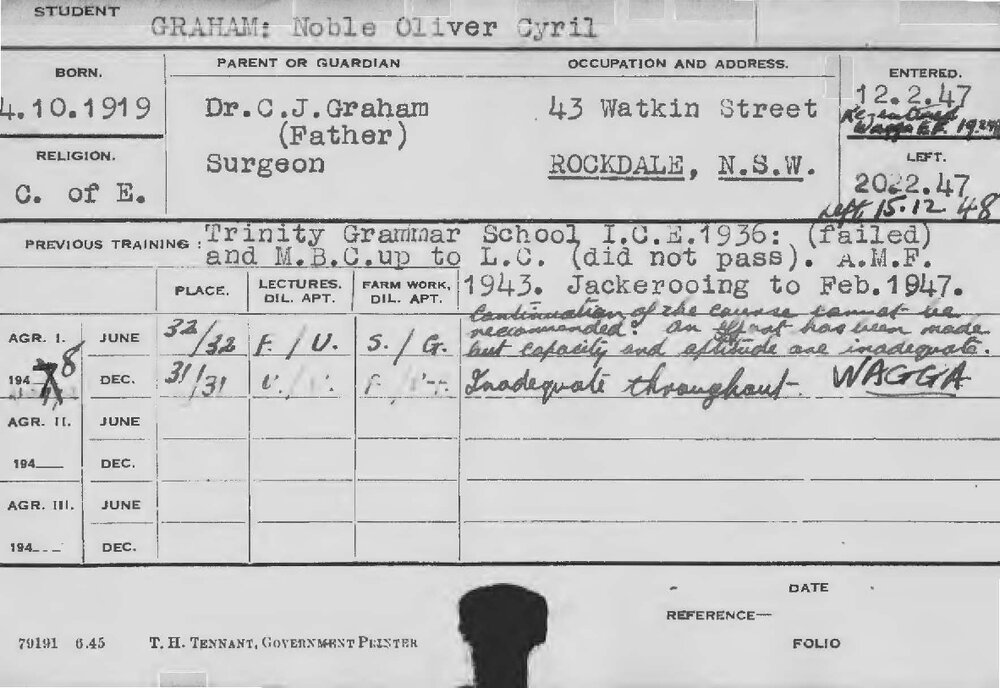 STUDENT
GRAHAM: Noble Oliver Cyril
BORN.
PARENT OR GUARDIAN
OCCUPATION AND ADDRESS.
ENTERED.
4.10.1919
Dr.C.J.Graham
43 Watkin Street
12.2.47
(Father)
Wagga E.F. 19.2.48
RELIGION.
Surgeon
ROCKDALE, N.S.W.
LEFT.
C. of E.
2022.47
Left 15.12.48
PREVIOUS TRAINING: Trinity Grammar School I.C.E.1936: (failed)
and M.B.C.up to L.C. (did not pass). A.M.F.
PLACE. LECTURES. DIL. APT. FARM WORK. DIL. APT. 1943. Jackerooing to Feb.1947.
Continuation of the course cannot be
AGR. I. JUNE 32/32 F./U. S./G. recommended. An effort has been made
but capacity and aptitude are inadequate.
194 8 DEC. 31/31 Inadequate throughout. WAGGA
AGR. II. JUNE
194 DEC.
AGR. III. JUNE
194 DEC.
DATE
REFERENCE—
79191 6.45 T. H. TENNANT, GOVERNMENT PRINTER
FOLIO